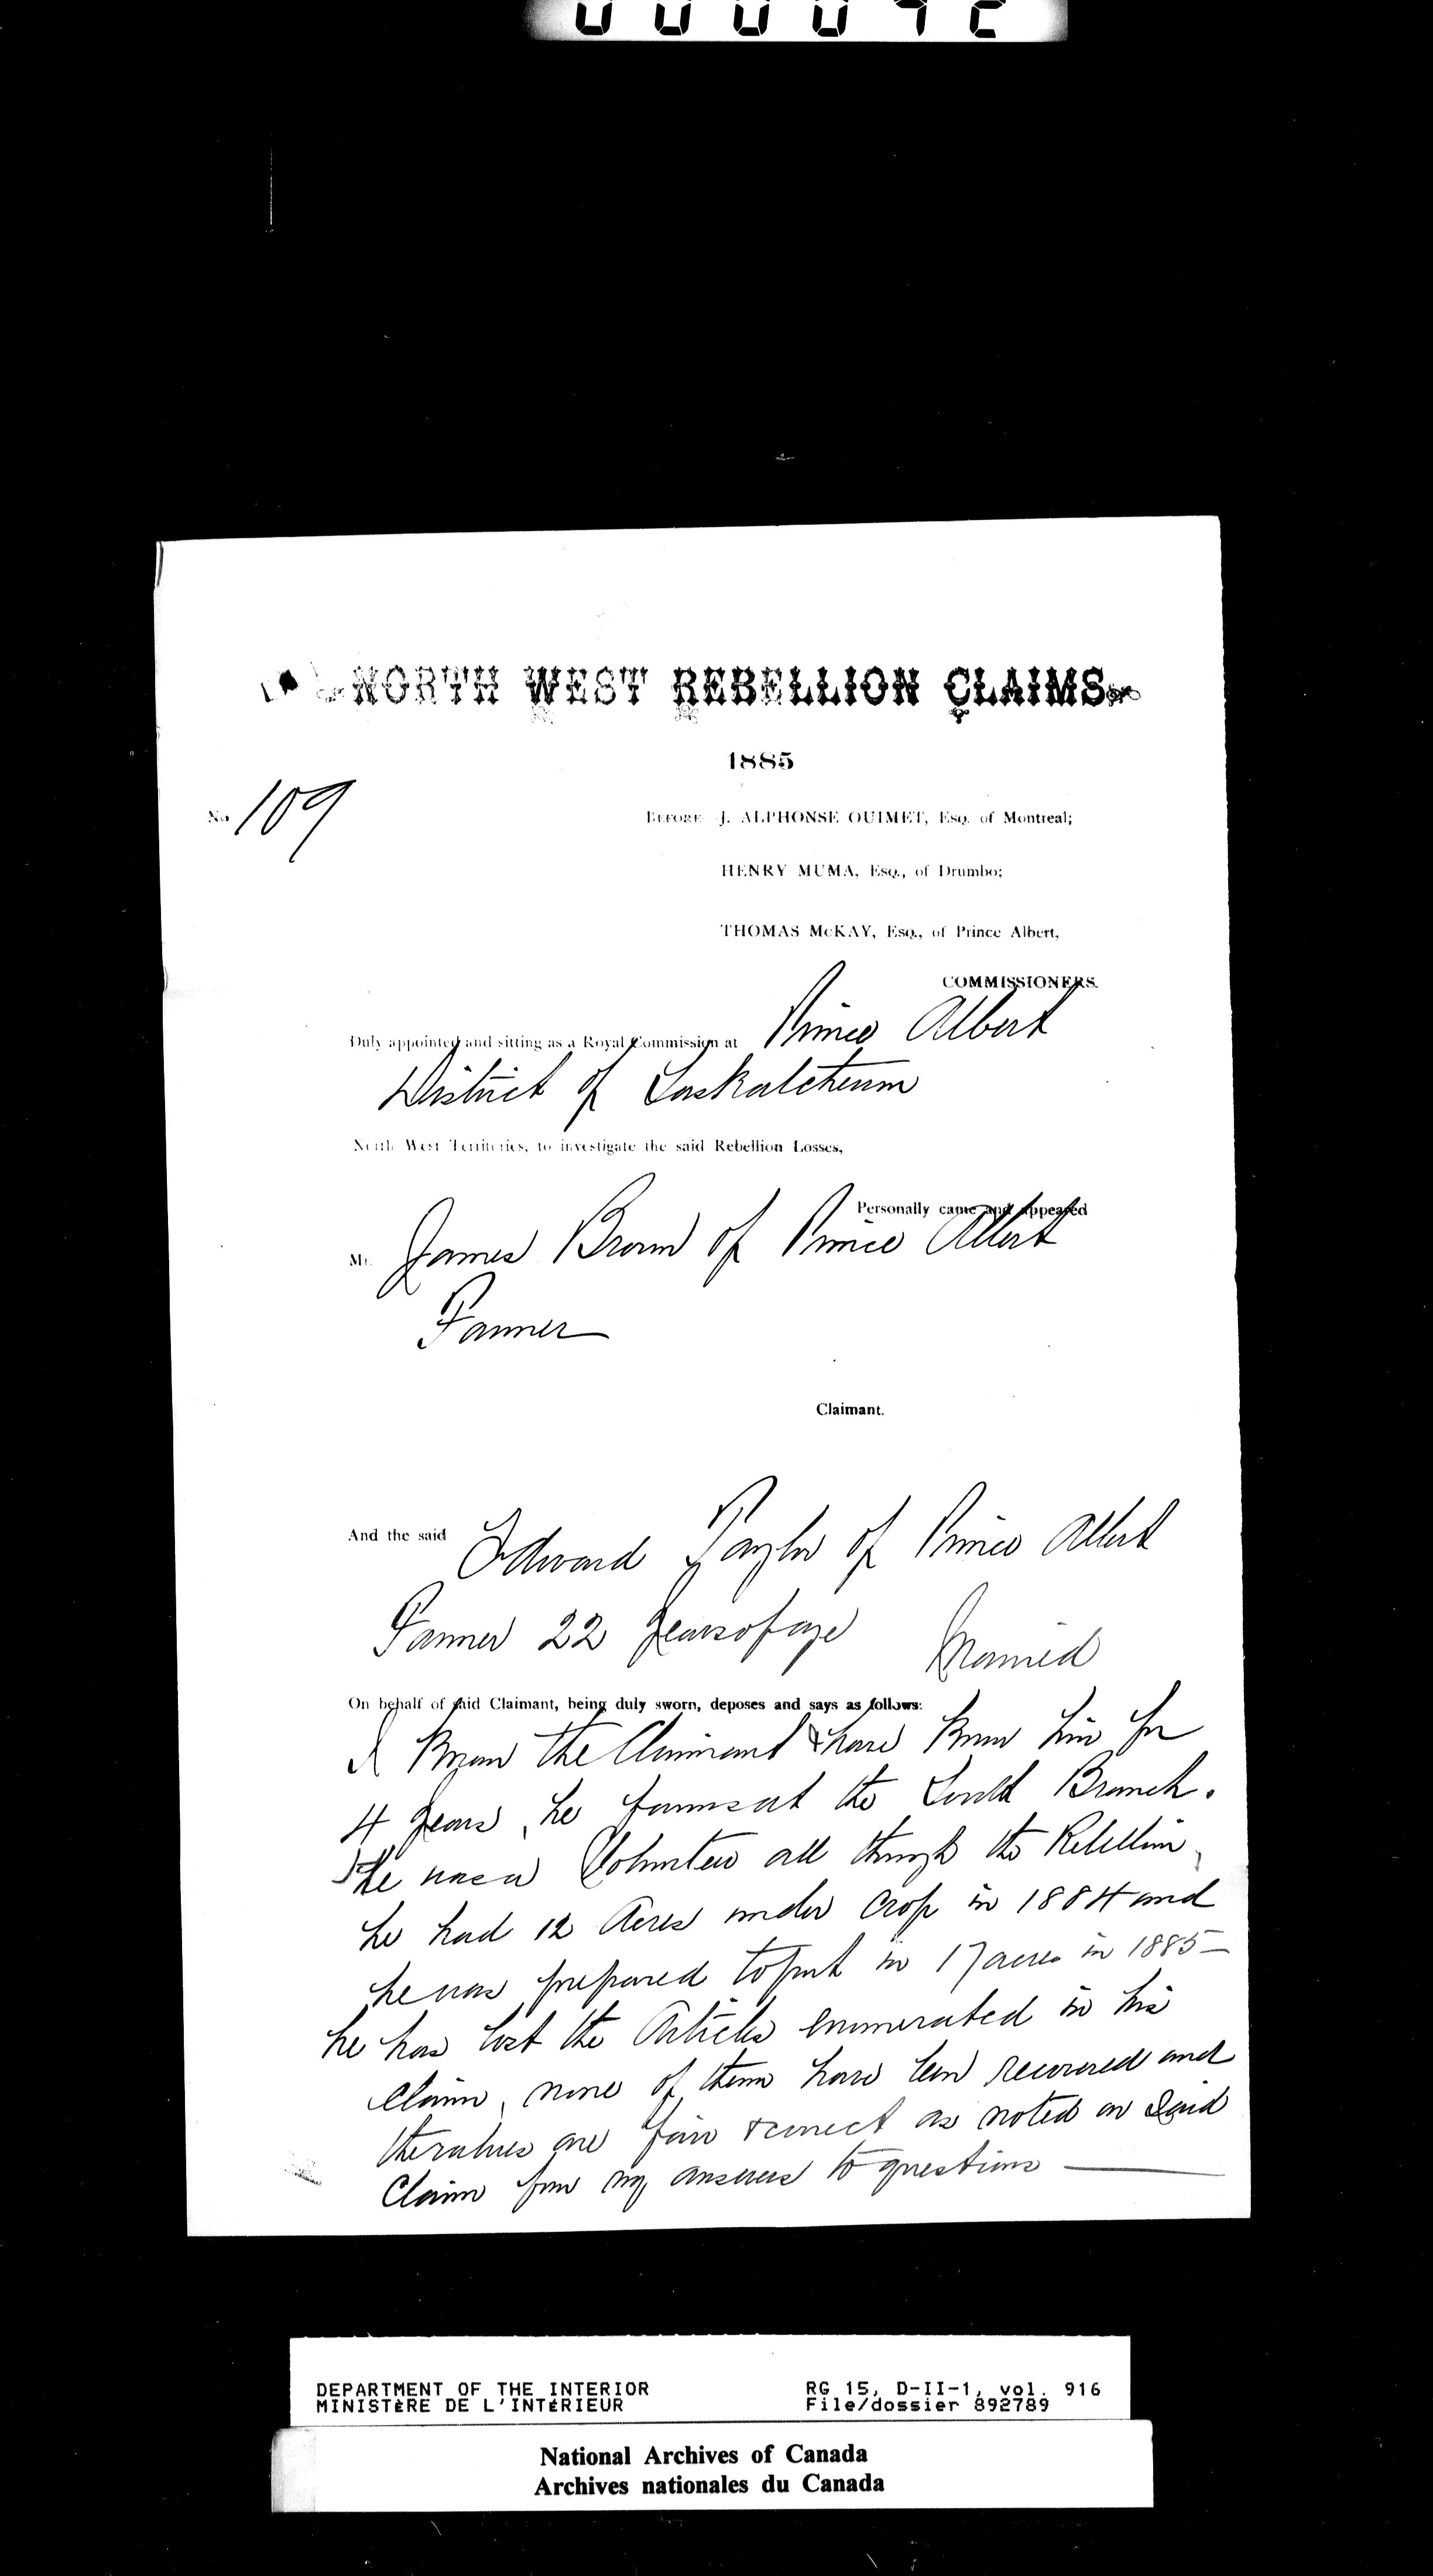 000092
NORTH WEST REBELLION CLAIMS.
1885
No. 109
BEFORE J. ALPHONSE OUIMET, Esq. of Montreal;
HENRY MUMA, Esq., of Drumbo;
THOMAS McKAY, Esq., of Prince Albert,
COMMISSIONERS.
Duly appointed and sitting as a Royal Commission at Prince Albert
District of Saskatchewan
North West Territories, to investigate the said Rebellion Losses,
Personally came and appeared
Mr. James Brown of Prince Albert
Farmer
Claimant.
And the said Edward Taylor of Prince Albert
Farmer 22 years of age Married
On behalf of said Claimant, being duly sworn, deposes and says as follows:
I know the Claimant & have known him for
4 years, he farms at the South Branch.
He was a Volunteer all through the Rebellion,
he had 12 Acres under crop in 1884 and
he was prepared to put in 17 acres in 1885 –
he has lost the Articles enumerated in his
claim, none of them have been recovered and
the values are fair & correct as noted on said
Claim from my answers to questions
DEPARTMENT OF THE INTERIOR RG 15, D-II-1, vol. 916
MINISTÈRE DE L'INTÉRIEUR File/dossier 892789
National Archives of Canada
Archives nationales du Canada